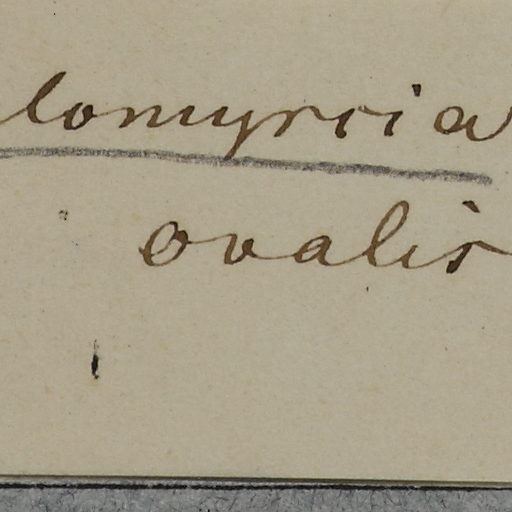 lomyrcia
ovalis